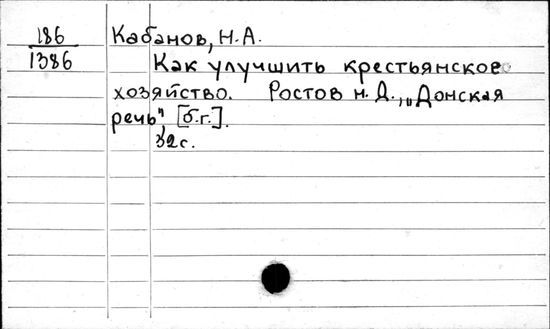 186
1386
Кабанов, Н.А.
Как улучшить крестьянское
хозяйство. Ростов н. Д., „Донская
речь", [б.г.].
32с.